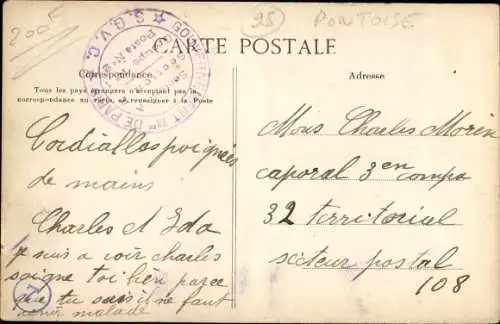 200€
95
PONTOISE
★ S.G.V.C.
CARTE POSTALE
Correspondance
Adresse
Tous les pays étrangers n'acceptent pas la
correspondance au recto, se renseigner à la Poste
Cordialles poignées
de mains
Charles et Ida
je suis a voir charles
soigne toi bien parce
que tu sais il ne faut
tenir malade
Mons Charles Morin
caporal 3en compe
32 territorial
secteur postal
108